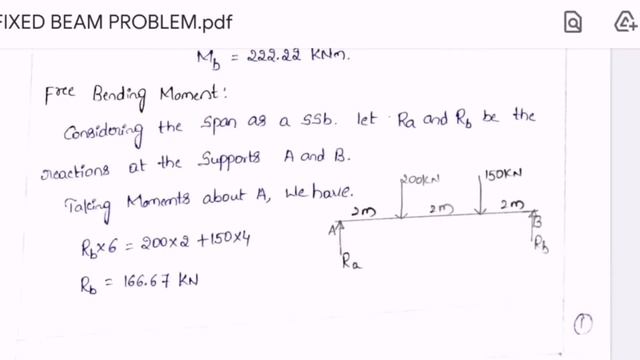 FIXED BEAM PROBLEM.pdf
Mb = 222.22 KNm.
Free Bending Moment:
Considering the span as a ssb. let Ra and Rb be the
reactions at the supports A and B.
Taking Moments about A, we have.
200KN
150KN
2m
2m
2m
A
B
Rb×6 = 200×2 +150×4
Ra
Rb
Rb = 166.67 KN
1